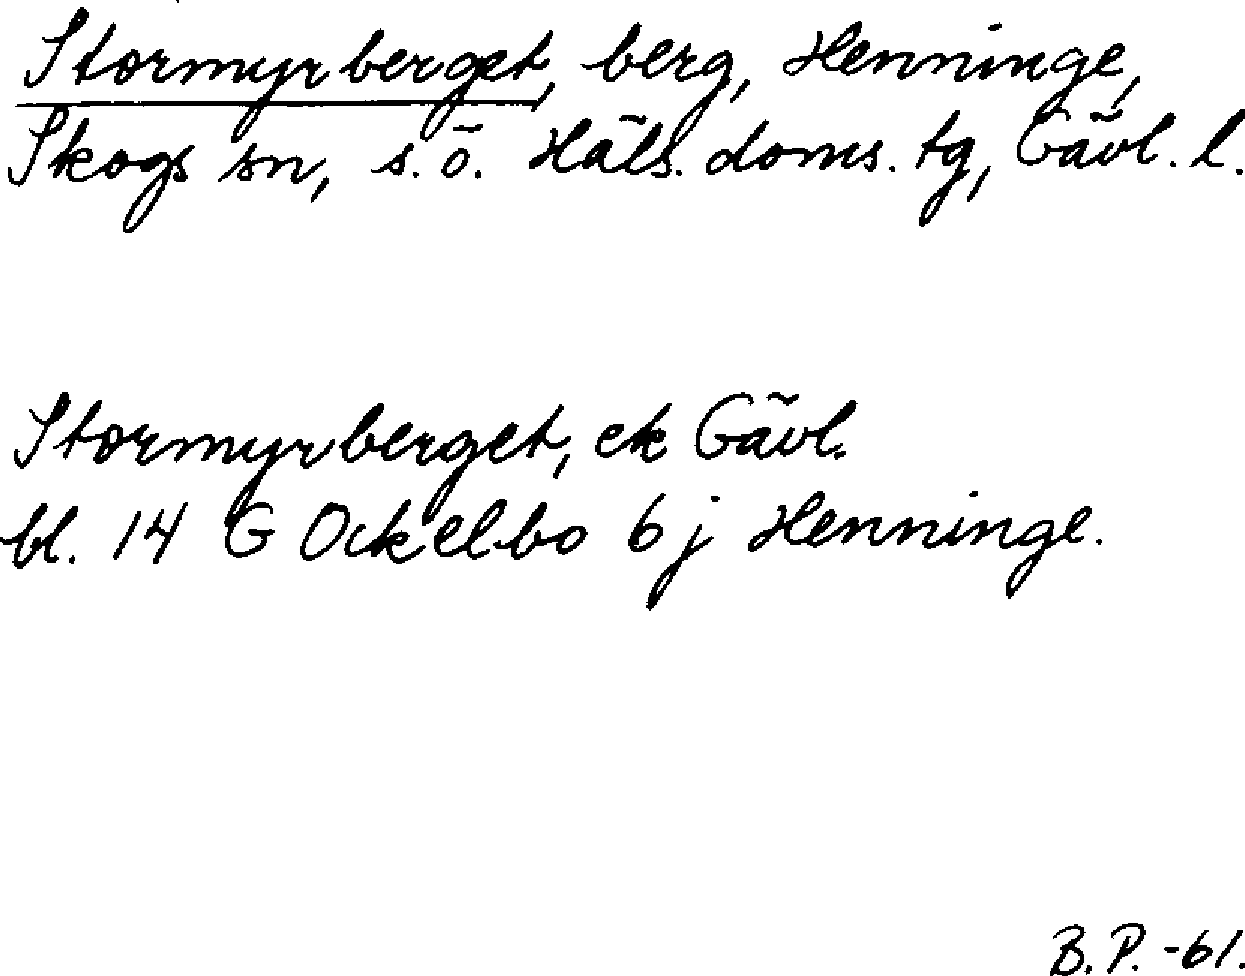 Stormyrberget, berg, Henninge,
Skogs sn, s.ö. Häls. doms. tg, Gävl. l.
Stormyrberget, ek Gävl.
bl. 14 G Ockelbo 6 j Henninge.
B.P. -61.